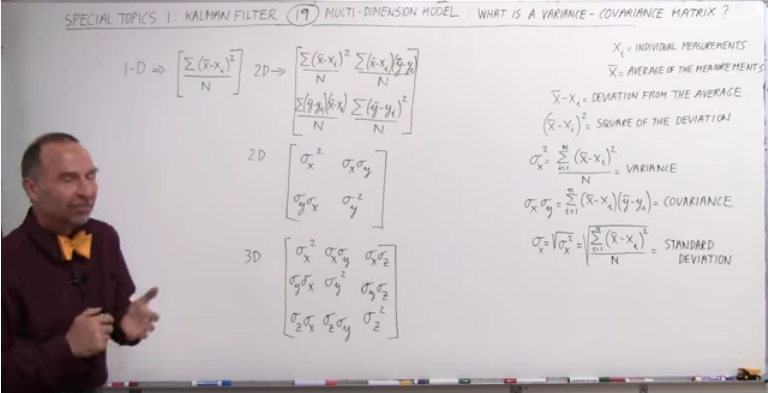 SPECIAL TOPICS 1: KALMAN FILTER (19) MULTI-DIMENSION MODEL: WHAT IS A VARIANCE-COVARIANCE MATRIX?
1-D ⇒ [ Σ(x̄-xᵢ)² / N ] 2D → [ Σ(x̄-xᵢ)² / N Σ(x̄-xᵢ)(ȳ-yᵢ) / N
Σ(ȳ-yᵢ)(x̄-xᵢ) / N Σ(ȳ-yᵢ)² / N ]
2D [ σx² σxσy
σyσx σy² ]
3D [ σx² σxσy σxσz
σyσx σy² σyσz
σzσx σzσy σz² ]
xᵢ = INDIVIDUAL MEASUREMENTS
X̄ = AVERAGE OF THE MEASUREMENTS
X̄-Xᵢ = DEVIATION FROM THE AVERAGE
(X̄-Xᵢ)² = SQUARE OF THE DEVIATION
σx² = Σ(i=1 to N) (X̄-Xᵢ)² / N = VARIANCE
σxσy = Σ(i=1 to n) (X̄-Xᵢ)(ȳ-yᵢ) = COVARIANCE
σx = √σx² = √(Σ(i=1 to N) (X̄-Xᵢ)² / N) = STANDARD
DEVIATION